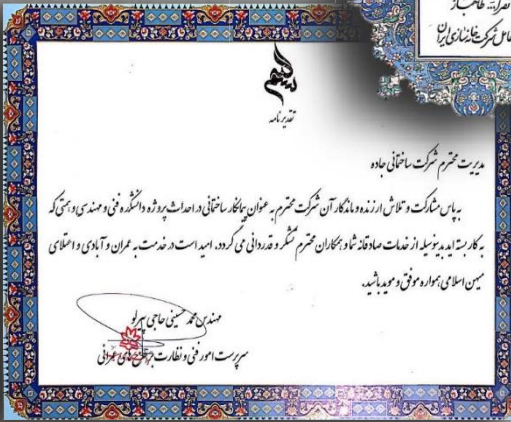 نصرا... طاهباز
عامل شرکت خانه‌سازی ایران
تقدیر نامه
مدیریت محترم شرکت ساختمانی جاده
به پاس مشارکت و تلاش ارزنده و ماندگار آن شرکت محترم به عنوان پیمانکار ساختمانی در احداث پروژه دانشکده فنی و مهندسی و همتی که
به کار بسته اید بدینوسیله از خدمات صادقانه شما و همکاران محترم تشکر و قدردانی می گردد، امید است در خدمت به عمران و آبادی و اعتلای
میهن اسلامی همواره موفق و موید باشید.
مهندس محمد حسینی حاجی پیرلو
سرپرست امور فنی و نظارت بر طرح های عمرانی